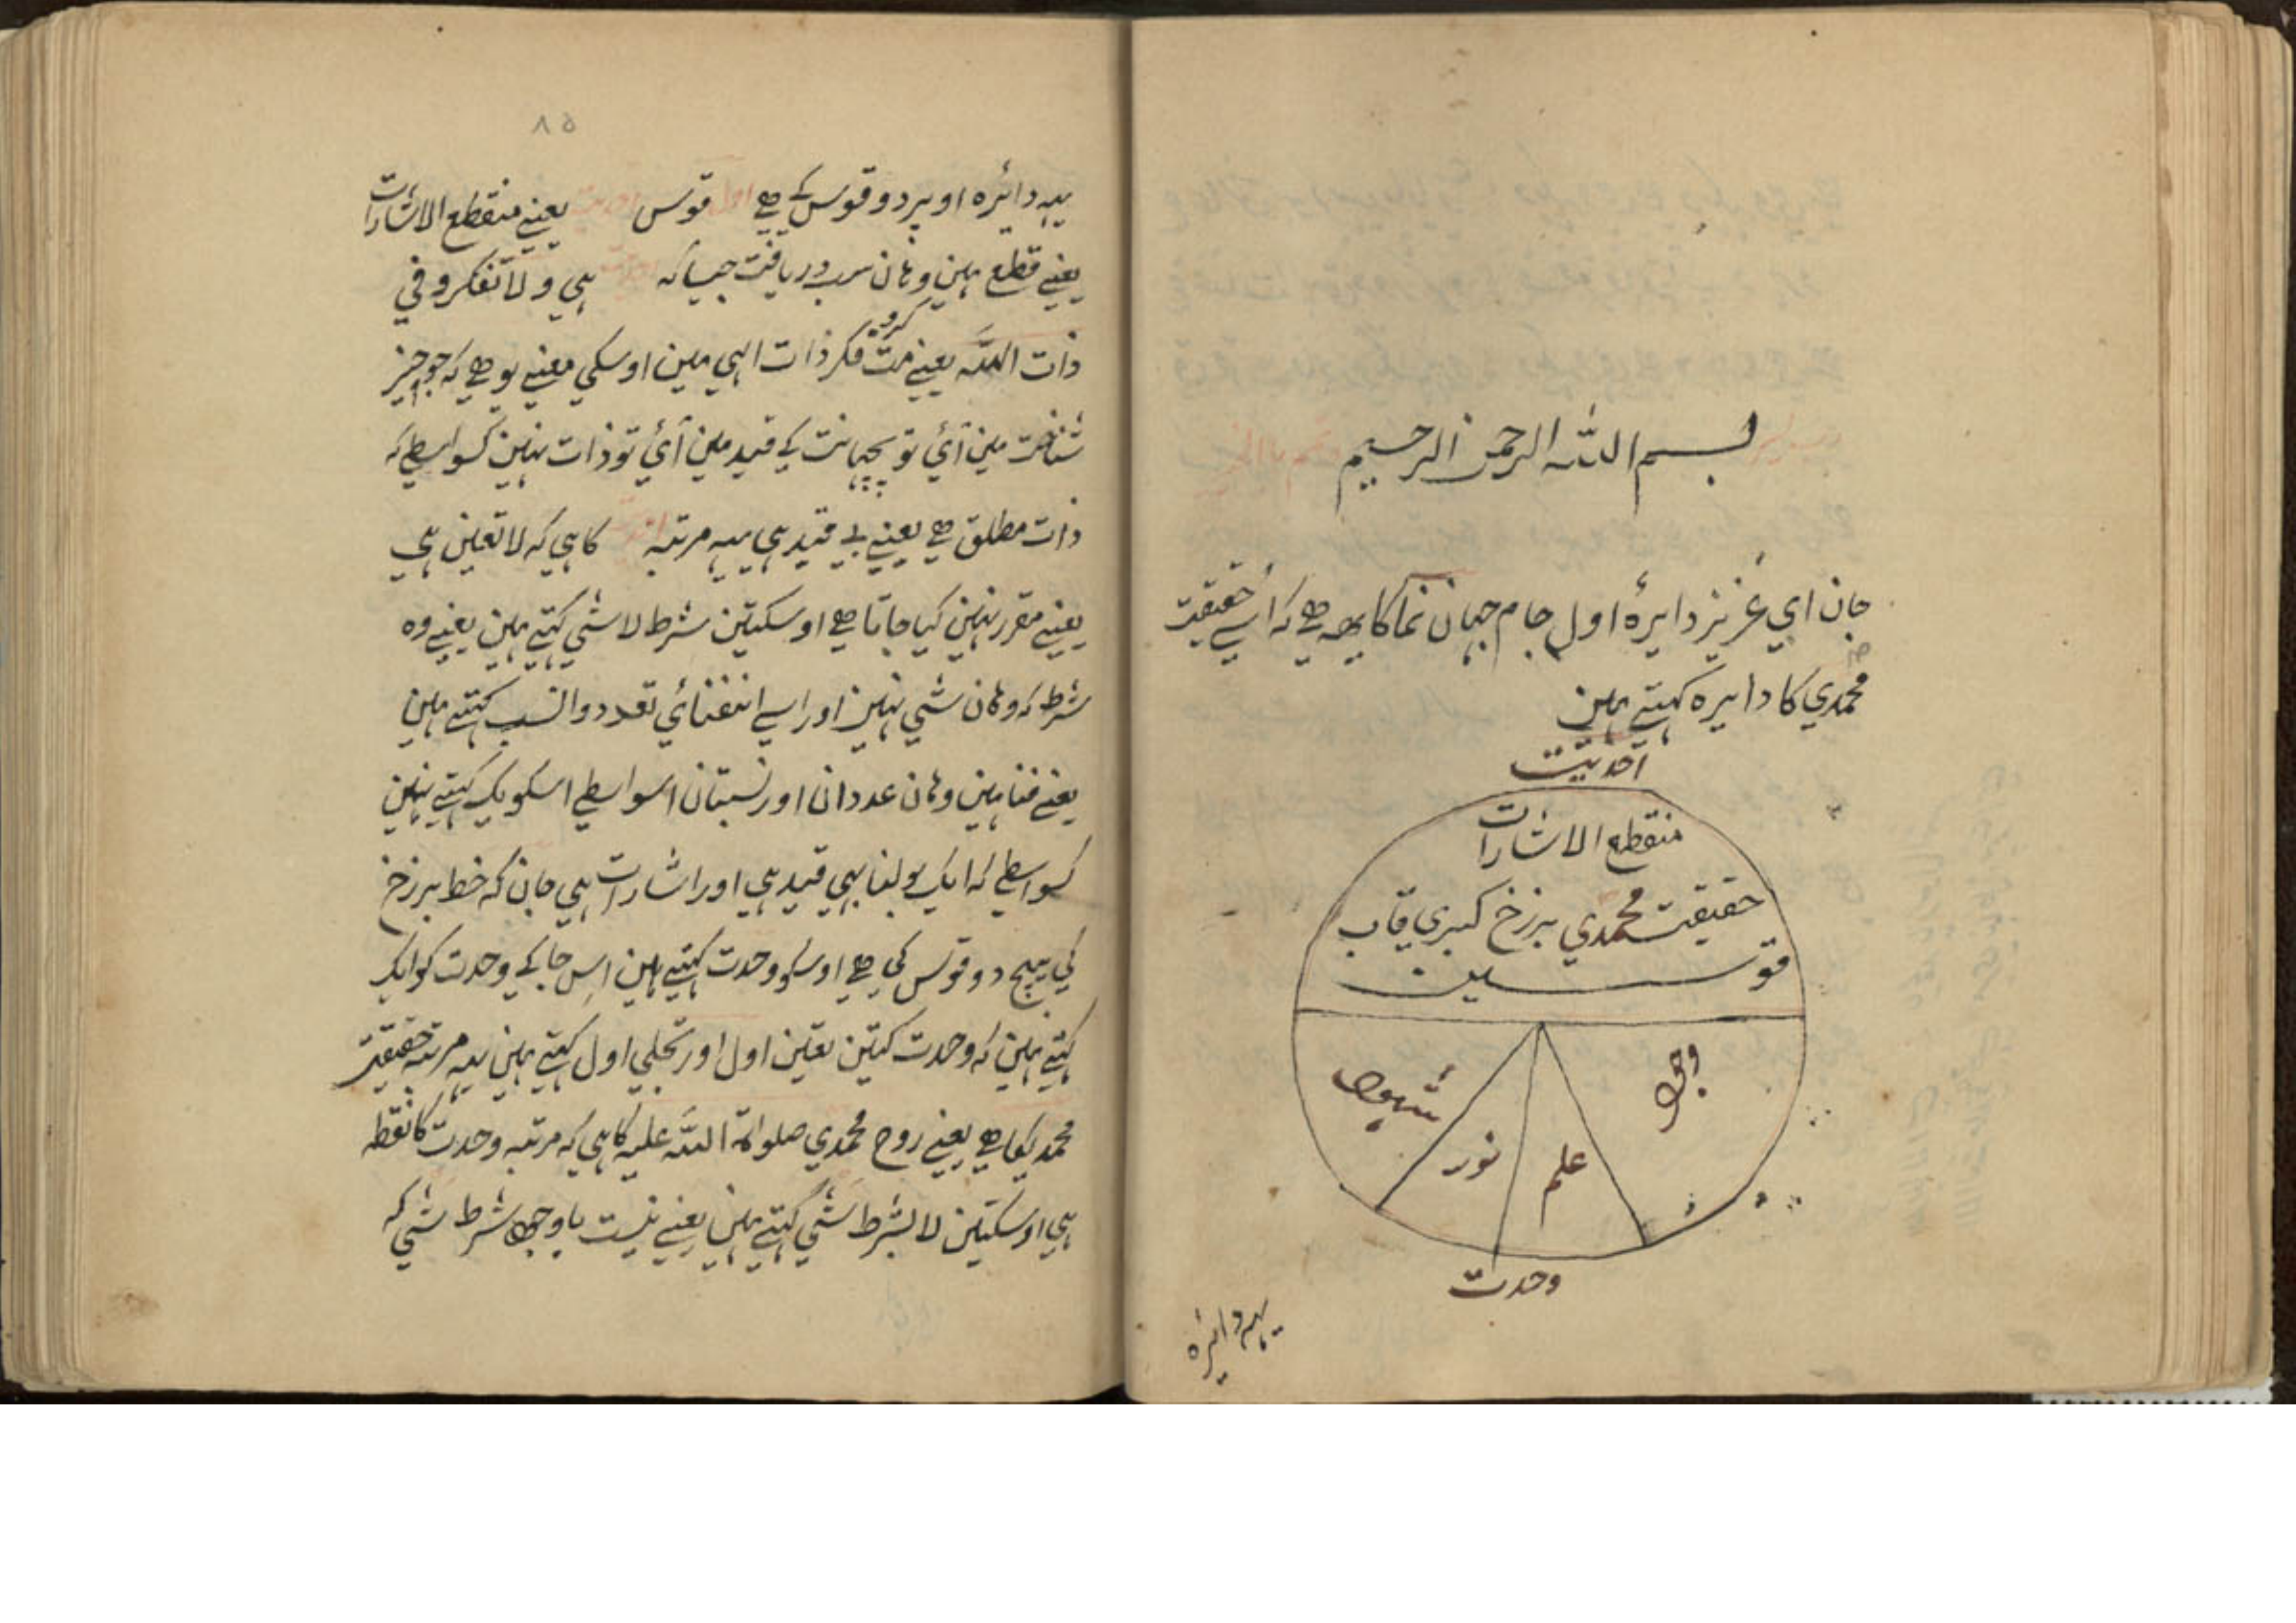 بسم الله الرحمن الرحیم
جان اي عزیز دایرهٔ اول جام جهان نما کا یهہ هے کہ اُسے حقیقت
محمدي کا دایره کہتے ہین
احدیّت
منقطع الاشارات
حقیقت محمدي برزخ کبری قاب
قوسین
وجود
علم
نور
شہود
وحدت
یہہ دائره
۸۵
یہہ دائره اوپر دو قوس کے هے اول قوس احدیت یعنے منقطع الاشارات
یعنے قطع ہین وہان سب دریافت جیسا کہ ہي و لا تفکرو في
ذات اللّه یعنے مت کرو فکر ذات الہي مین اوسکي معنے یو هے کہ جو چیز
شناخت مین آئي تو پچہانت کے قید مین آئي تو ذات نہین کسواسطے کہ
ذات مطلق هے یعنے بے قید ہي یہہ مرتبہ کا ہي کہ لا تعین ہي
یعنے مقرر نہین کیا جاتا هے اوسکتین شرط لاشي کہتے ہین یعنے وه
شرط کہ وہان شي نہین اور اسے انتفنائي تعدد والنسب کہتے ہین
یعنے فنا ہین وہان عددان اور نسبتان اسواسطے اسکو یک کہتے نہین
کسواسطے کہ ایک بولنا بہي قید ہي اور اشارات ہي جان کہ خط برزخ
کي بیچ دو قوس کي هے اوسکو وحدت کہتے ہین اِس جا کے وحدت کو ایک
کہتے ہین کہ وحدت کتین تعین اول اور تجلي اول کہتے ہین یہہ مرتبہ حقیقت
محمدیکا هے یعنے روح محمدي صلواة اللّه علیہ کا ہي کہ مرتبہ وحدت کا نقطہ
ہي اوسکتین لا بشرط شي کہتے ہین یعنے نیست با وجود شرط شي کہ